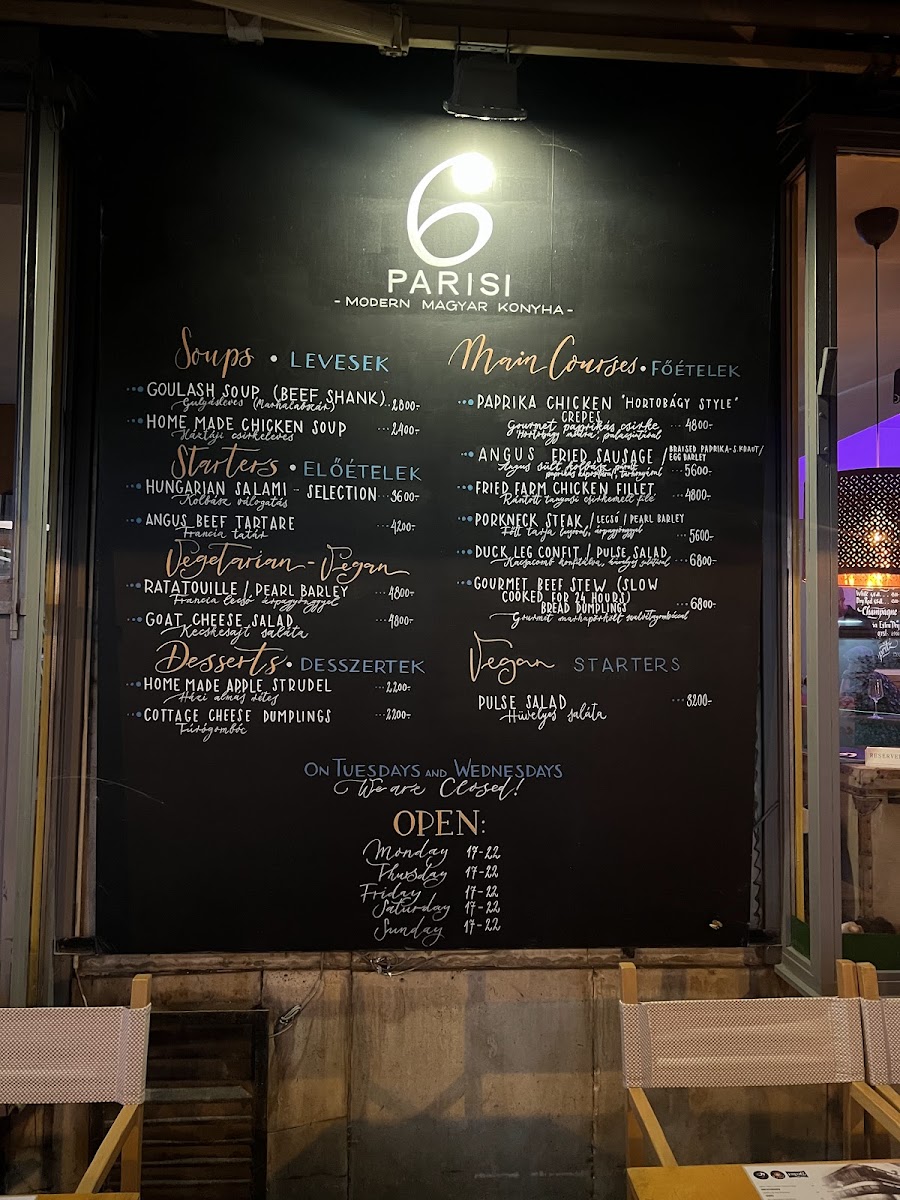 6
PARISI
- MODERN MAGYAR KONYHA -
Soups • LEVESEK
GOULASH SOUP (BEEF SHANK) ...2800-
Gulyásleves (Marhalábszár)
HOME MADE CHICKEN SOUP ...2400-
Háztáji csirkeleves
Starters • ELŐÉTELEK
HUNGARIAN SALAMI - SELECTION ...3600-
Kolbász válogatás
ANGUS BEEF TARTARE ...4200-
Francia tatár
Vegetarian - Vegan
RATATOUILLE / PEARL BARLEY ...4800-
Francia lecsó árpagyönggyel
GOAT CHEESE SALAD ...4800-
Kecskesajt saláta
Desserts • DESSZERTEK
HOME MADE APPLE STRUDEL ...2200-
Házi almás rétes
COTTAGE CHEESE DUMPLINGS ...2200-
Túrógombóc
Main Courses • FŐÉTELEK
PAPRIKA CHICKEN "HORTOBÁGY STYLE"
CREPES ...4800-
Gourmet paprikás csirke
"Hortobágy módra", palacsintával
ANGUS FRIED SAUSAGE / BRAISED PAPRIKA-S.KRAUT/
EGG BARLEY ...5600-
Angus sült kolbász párolt
FRIED FARM CHICKEN FILLET ...4800-
Rántott tanyasi csirkemell filé
PORKNECK STEAK / LECSÓ / PEARL BARLEY
...5600-
DUCK LEG CONFIT / PULSE SALAD ...6800-
Kacsacomb konfitálva, hüvelyes salátával
GOURMET BEEF STEW (SLOW
COOKED FOR 24 HOURS)
BREAD DUMPLINGS ...6800-
Gourmet marhapörkölt szalvétagombóccal
Vegan STARTERS
PULSE SALAD ...3200-
Hüvelyes saláta
ON TUESDAYS AND WEDNESDAYS
We are Closed!
OPEN:
Monday 17-22
Thursday 17-22
Friday 17-22
Saturday 17-22
Sunday 17-22
Champagne
RESERVED